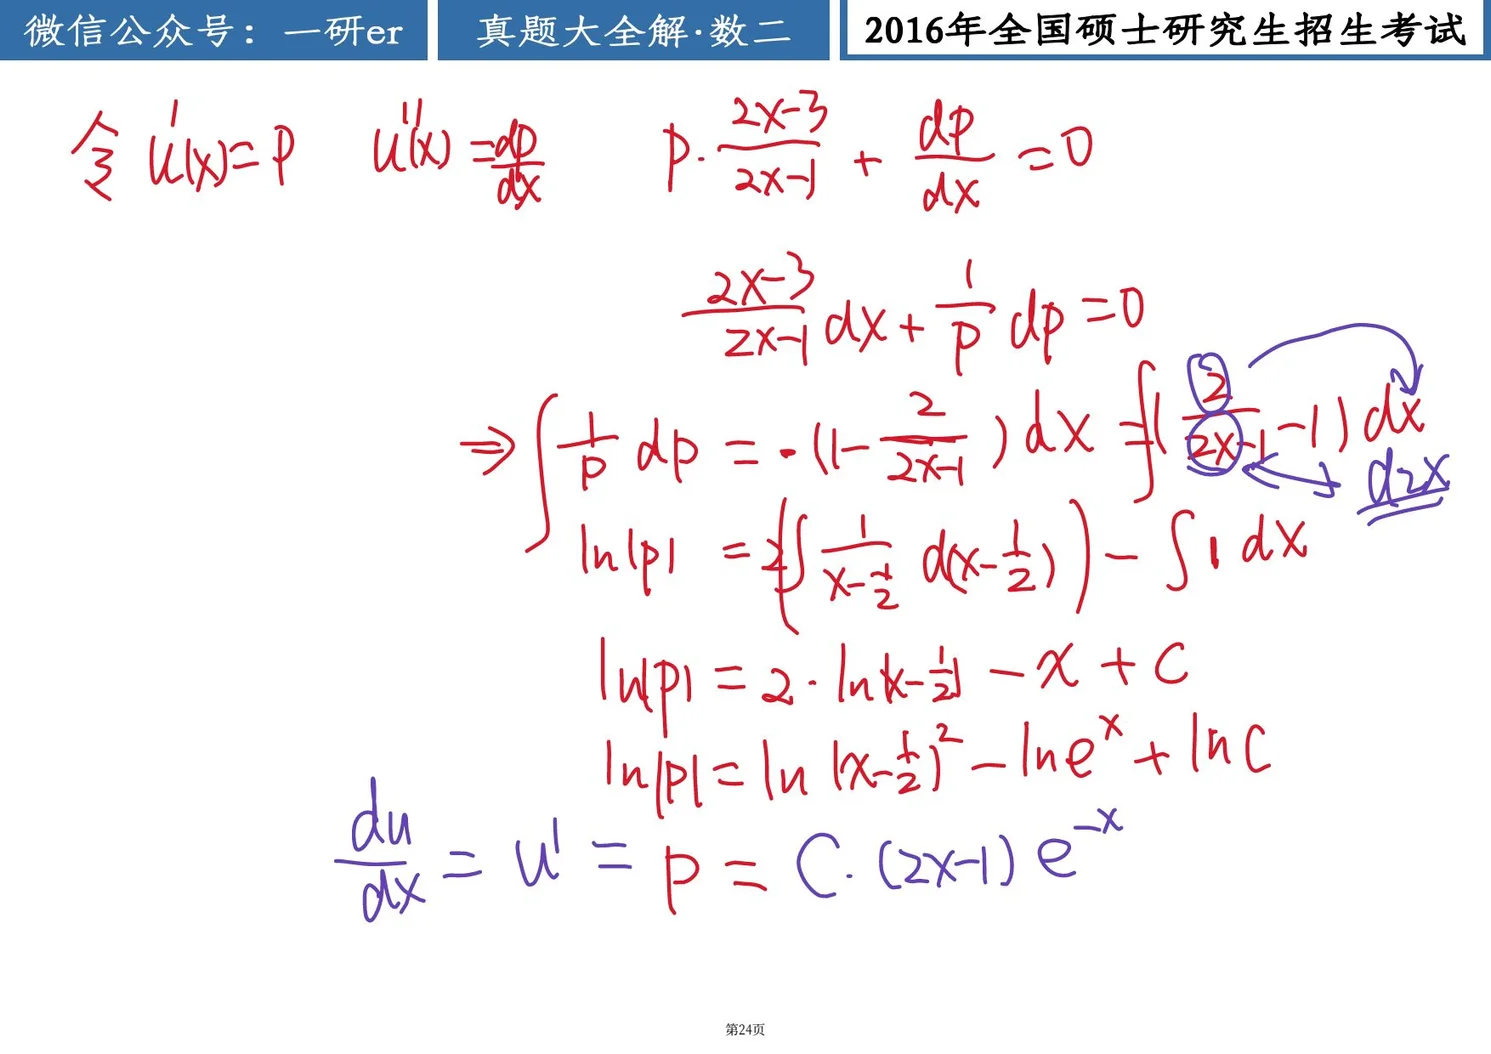 微信公众号：一研er 真题大全解·数二 2016年全国硕士研究生招生考试
令 u'(x)=p u''(x)=dp/dx p·(2x-3)/(2x-1) + dp/dx =0
(2x-3)/(2x-1) dx + 1/p dp =0
⇒ ∫ 1/p dp = -(1- 2/(2x-1)) dx = ∫( 2/(2x-1) -1) dx
d2x
ln|p| = 2(∫ 1/(x-1/2) d(x-1/2)) - ∫1 dx
ln|p| = 2·ln|x-1/2| - x + C
ln|p| = ln (x-1/2)² - lne^x + lnC
du/dx = u' = p = C·(2x-1) e^-x
第24页